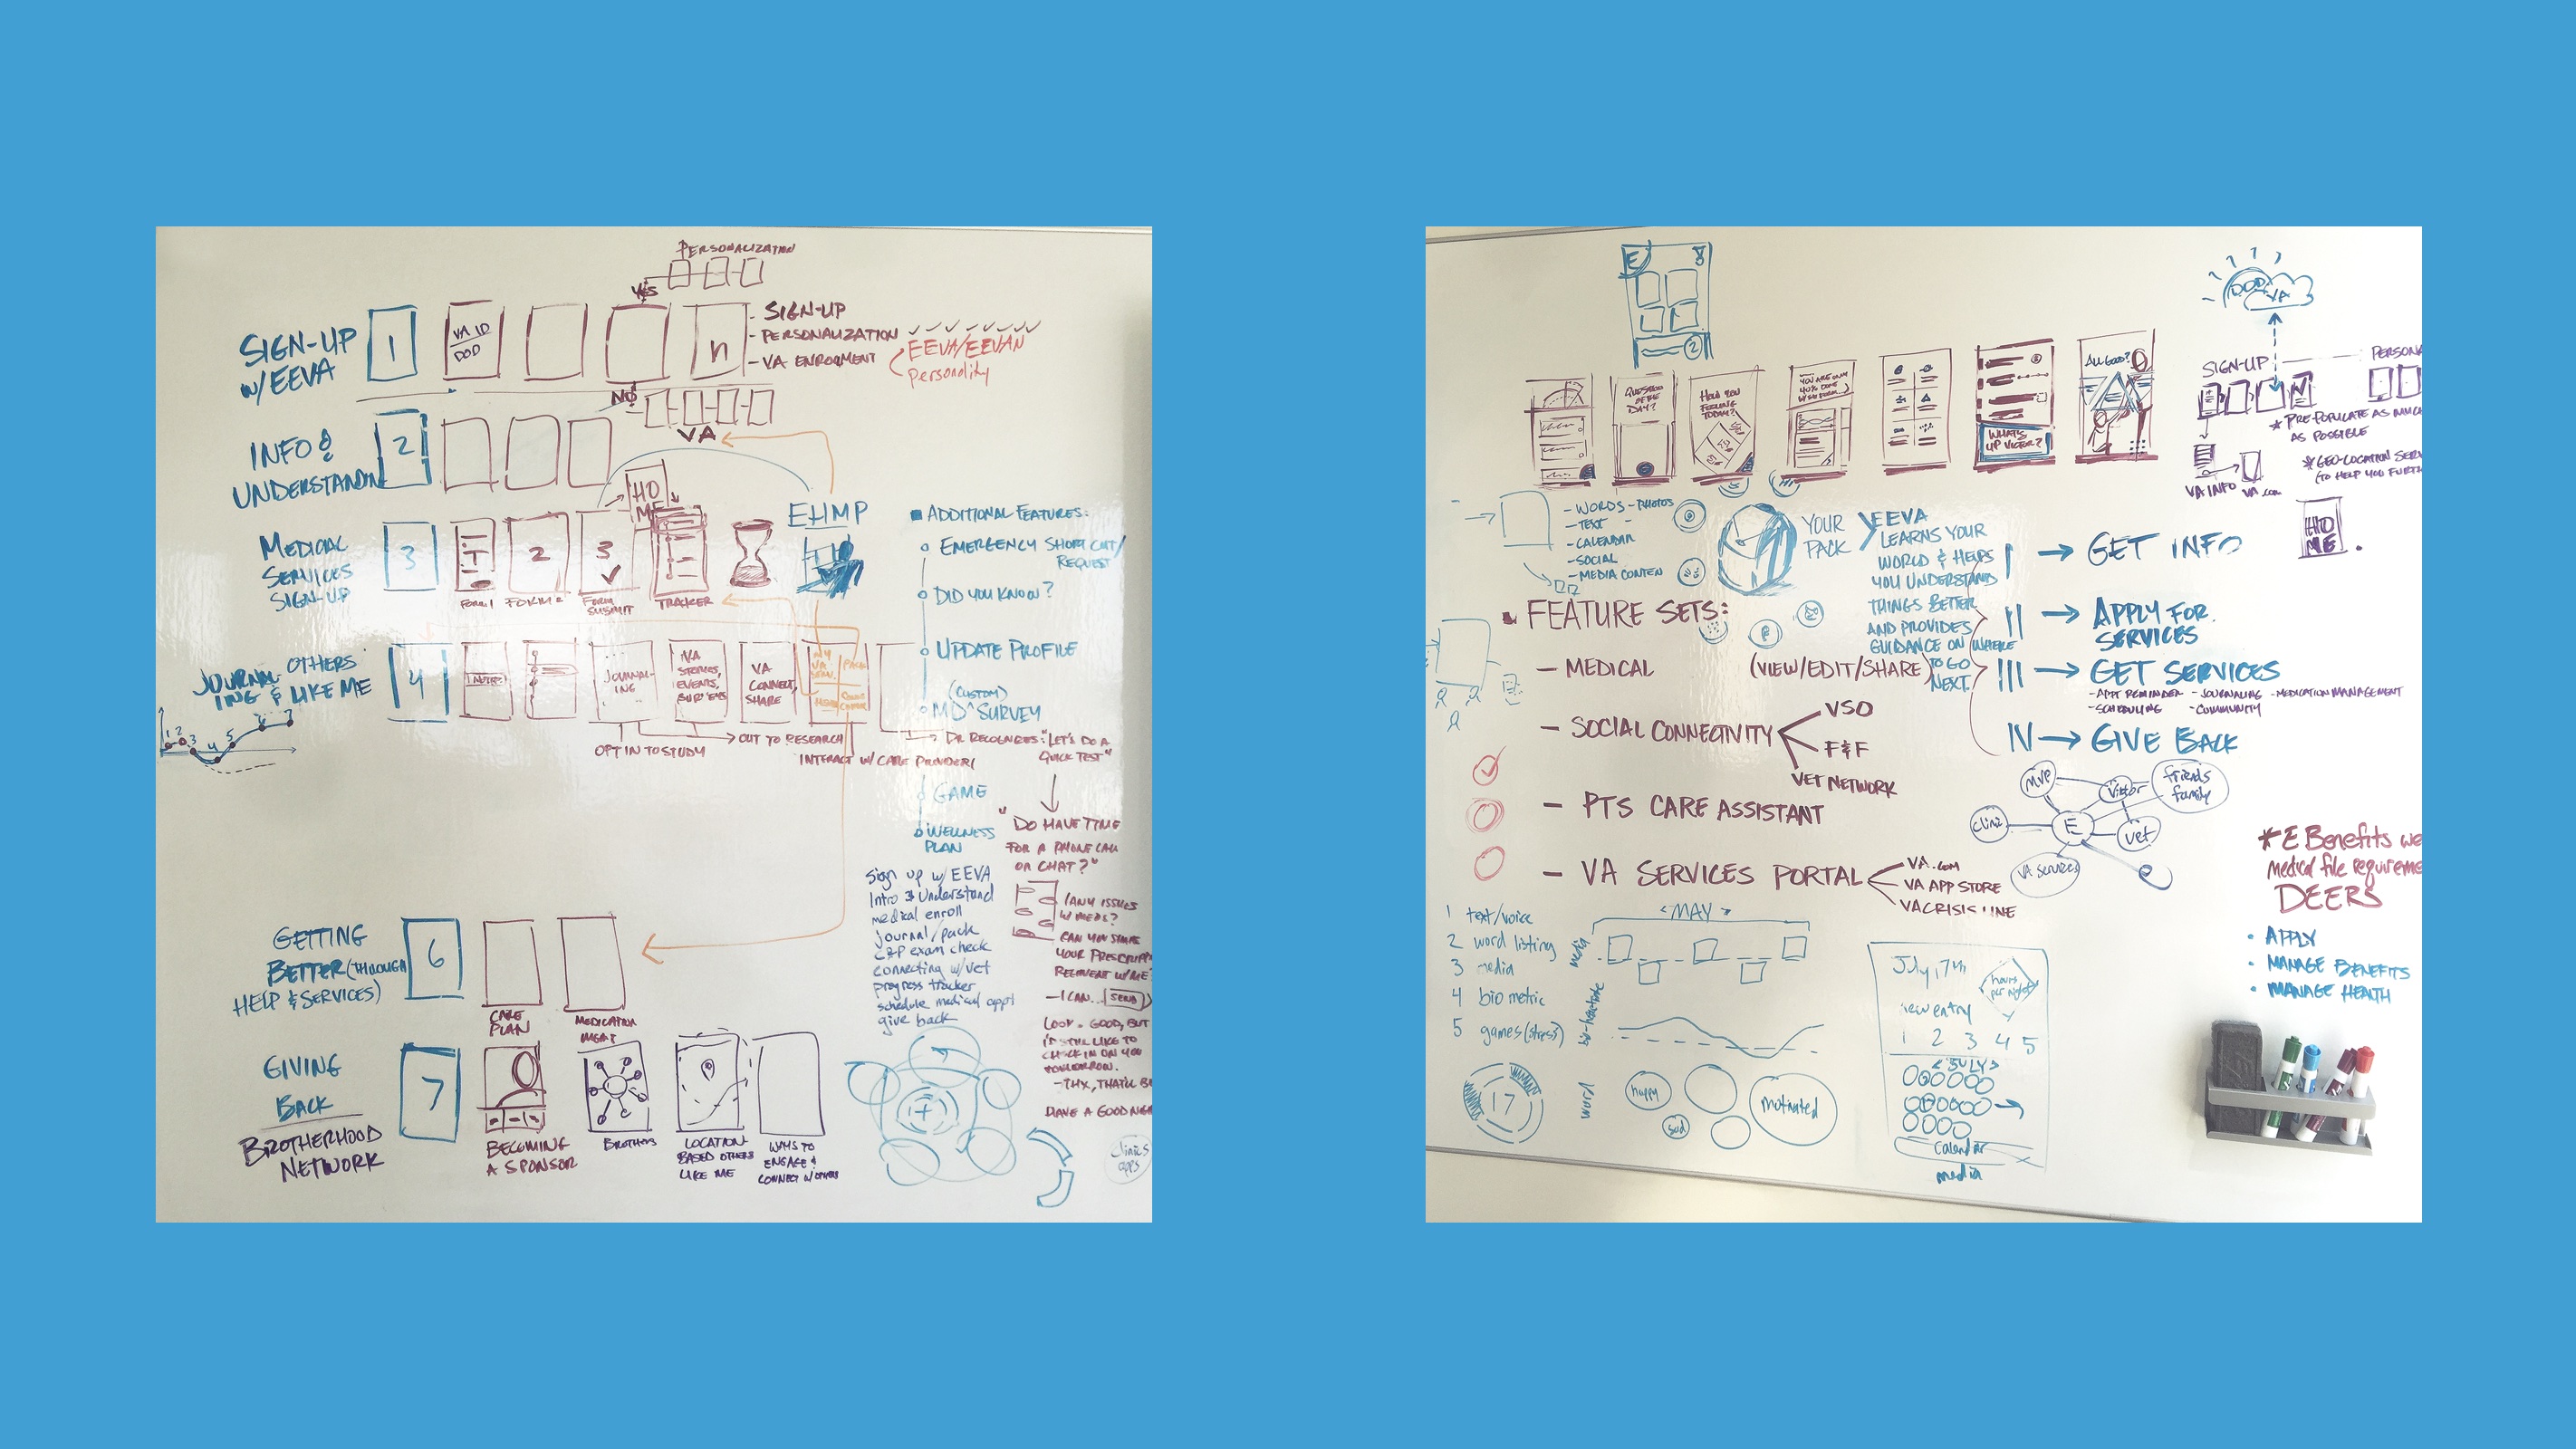 PERSONALIZATION
YES
SIGN-UP
W/ EEVA
1
VA ID
DOD
n
- SIGN-UP
- PERSONALIZATION
- VA ENROLMENT
EEVA/EEVAN
Personality
NO
VA
INFO &
UNDERSTANDIN
2
HO
ME
EHMP
MEDICIAL
SERVICES
SIGN-UP
3
1
2
3
FORM 1
FORM 2
FORM
SUBMIT
TRACKER
ADDITIONAL FEATURES:
EMERGENCY SHORT CUT/
REQUEST
DID YOU KNOW?
UPDATE PROFILE
(CUSTOM)
MD ^ SURVEY
JOURNAL-
ING &
OTHERS
LIKE ME
4
JOURNAL-
ING
VA
STORIES,
EVENTS,
SURVEYS
VA
CONNECT,
SHARE
1 2 3 4 5 6 7
OPT IN TO STUDY
OUT TO RESEARCH
INTERACT W/ CARE PROVIDER
DR RECOGNIZES: "LET'S DO A
QUICK TEST"
GAME
WELLNESS
PLAN
"DO HAVE TIME
FOR A PHONE CALL
OR CHAT?"
Sign up w/ EEVA
Intro & Understand
medical enroll
journal/pack
C&P exam check
connecting w/vet
progress tracker
schedule medical appt
give back
(ANY ISSUES
W/ MEDS?
CAN YOU SHARE
YOUR PRESCRIPT
W/ ME?
- I CAN... SEND
LOOK. GOOD, BUT
I'D STILL LIKE TO
CHECK IN ON YOU
TOMORROW.
- THX, THAT'LL B
HAVE A GOOD
GETTING
BETTER (THROUGH
HELP & SERVICES)
6
CARE
PLAN
MEDICATION
MGMT
GIVING
BACK
BROTHERHOOD
NETWORK
7
BECOMING
A SPONSOR
BROTHERS
LOCATION-
BASED OTHERS
LIKE ME
WAYS TO
ENGAGE &
CONNECT W/ OTHERS
clinics
apps
E
8
2
QUESTION
OF THE
DAY?
HOW YOU
FEELING
TODAY?
YOU ARE ONLY
40% DONE
W/ FORM...
WHAT'S
UP VICTOR?
ALL GOOD?
DOD
VA
SIGN-UP
PERSONA
* PRE-POPULATE AS MUCH
AS POSSIBLE
* GEO-LOCATION SERV
(TO HELP YOU FURTH
VA INFO
VA.com
HO
ME
- WORDS - PHOTOS
- TEXT -
- CALENDAR
- SOCIAL
- MEDIA CONTEN
YOUR
PACK
EEVA
LEARNS YOUR
WORLD & HELPS
YOU UNDERSTAND
THINGS BETTER
AND PROVIDES
GUIDANCE ON WHERE
TO GO
NEXT.
I → GET INFO
II → APPLY FOR
SERVICES
III → GET SERVICES
- APPT REMINDER - JOURNALING - MEDICATION MANAGEMENT
- SCHEDULING - COMMUNITY
IV → GIVE BACK
FEATURE SETS:
- MEDICAL (VIEW/EDIT/SHARE)
- SOCIAL CONNECTIVITY
VSO
F&F
VET NETWORK
- PTS CARE ASSISTANT
- VA SERVICES PORTAL
VA.com
VA APP STORE
VA CRISIS LINE
MVP
Viktor
friends
family
clinic
E
vet
VA services
* E Benefits we
Medical file requireme
DEERS
• APPLY
• MANAGE BENEFITS
• MANAGE HEALTH
1 text/voice
2 word listing
3 media
4 bio metric
5 games (stress)
< MAY >
media
word
17
happy
sad
motivated
July 17th
hours
per night
new entry
1 2 3 4 5
< JULY >
Calendar
media